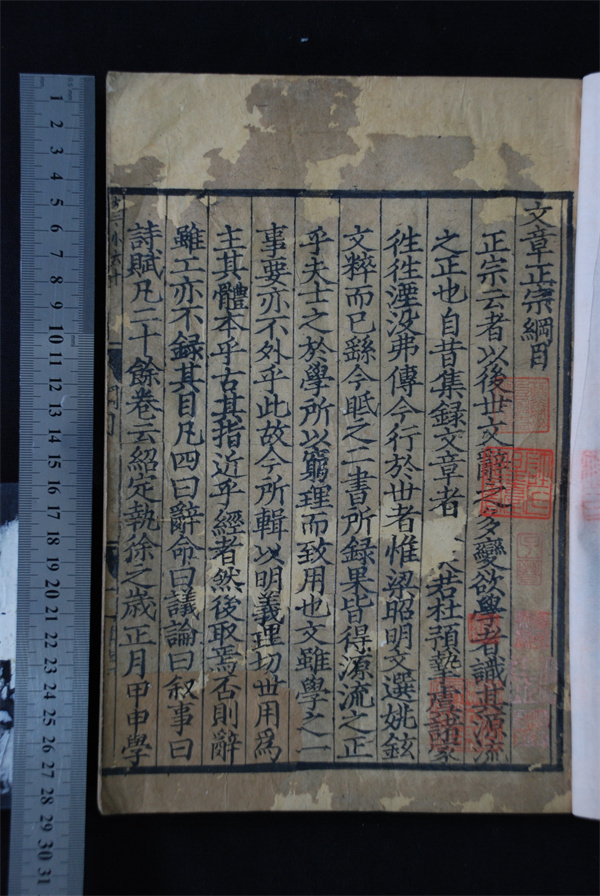 文章正宗綱目
正宗云者以後世文辭之多變欲學者識其源流
之正也自昔集録文章者若杜預摯虞諸家
徃徃湮没弗傳今行於世者惟梁昭明文選姚鉉
文粹而已繇今眡之二書所録果皆得源流之正
乎夫士之於學所以窮理而致用也文雖學之一
事要亦不外乎此故今所輯以明義理切世用爲
主其體本乎古其指近乎經者然後取焉否則辭
雖工亦不録其目凡四曰辭命曰議論曰叙事曰
詩賦凡二十餘卷云紹定執徐之歲正月甲申學
1
2
3
4
5
6
7
8
9
10
11
12
13
14
15
16
17
18
19
20
21
22
23
24
25
26
27
28
29
30
31